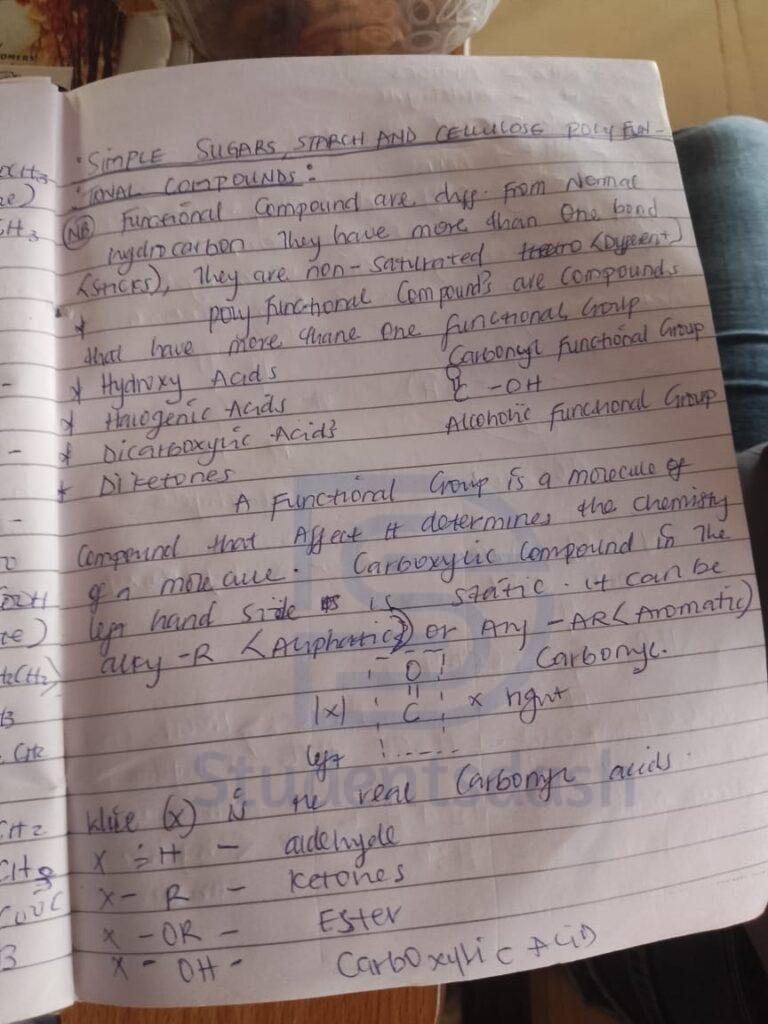 • SIMPLE SUGARS, STARCH AND CELLULOSE POLY FUN-
TIONAL COMPOUNDS:
NB Functional Compound are diff. from Normal
hydrocarbon They have more than One bond
(sticks), They are non-saturated
* poly functional Compounds are compounds
that have more thane One functional Group
* Hydroxy Acids Carbonyl Functional Group
* Halogenic Acids C -OH
* Dicarboxylic Acids Alcoholic Functional Group
* Diketones
A Functional Group is a molecule of
Compound that Affect It determines the chemistry
of a molecule. Carboxylic Compound in The
left hand side is static. it can be
alky -R (Aliphatic) or Ary -AR (Aromatic)
O Carbonyl.
|x| C x right
left
(x) is the real Carbonyl acids.
X -H - aldehyde
X - R - Ketones
X - OR - Ester
X - OH - Carboxylic Acid
Studentsdash
OCH3
CH3
CH2
CH2
CH3